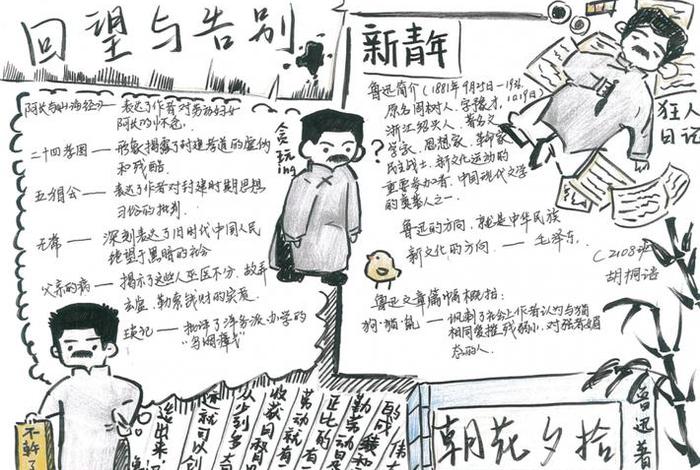 回望与告别
阿长与山海经 — 表达了作者对劳动妇女
阿长的怀念.
二十四孝图 — 形象揭露了封建孝道的虚伪
和残酷.
五猖会 — 表达了作者对封建时期思想
习俗的批判.
无常 — 深刻表达了旧时代中国人民
绝望于黑暗的社会
父亲的病 — 揭示了这些人巫医不分、故弄
玄虚、勒索钱财的实质.
琐记 — 批评了洋务派办学的
"乌烟瘴气"
贪玩
ing
?
新青年
鲁迅简介(1881年9月25日—1936.
10.19日)
原名周树人,字豫才,
浙江绍兴人.著名文
学家、思想家、革命家
民主战士.新文化运动的
重要参与者.中国现代文学
的奠基人之一.
鲁迅的方向,就是中华民族
新文化的方向. —— 毛泽东.
狂人
日记
(2108班
胡桐语
鲁迅文章篇幅概括:
狗·猫·鼠 — 讽刺了社会上作者认为与猫
相同爱摧残弱小.对强者媚
态的人.
不干了
朝花夕拾
鲁迅著